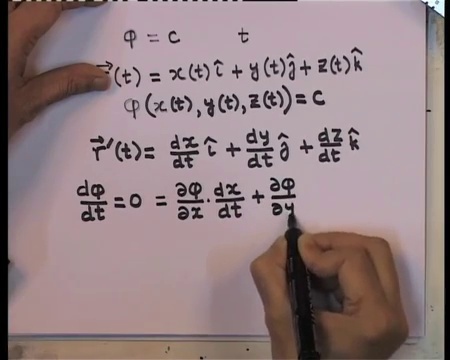 φ = c t
r⃗(t) = x(t) î + y(t) ĵ + z(t) k̂
φ(x(t), y(t), z(t)) = c
r⃗'(t) = dx/dt î + dy/dt ĵ + dz/dt k̂
dφ/dt = 0 = ∂φ/∂x · dx/dt + ∂φ/∂y